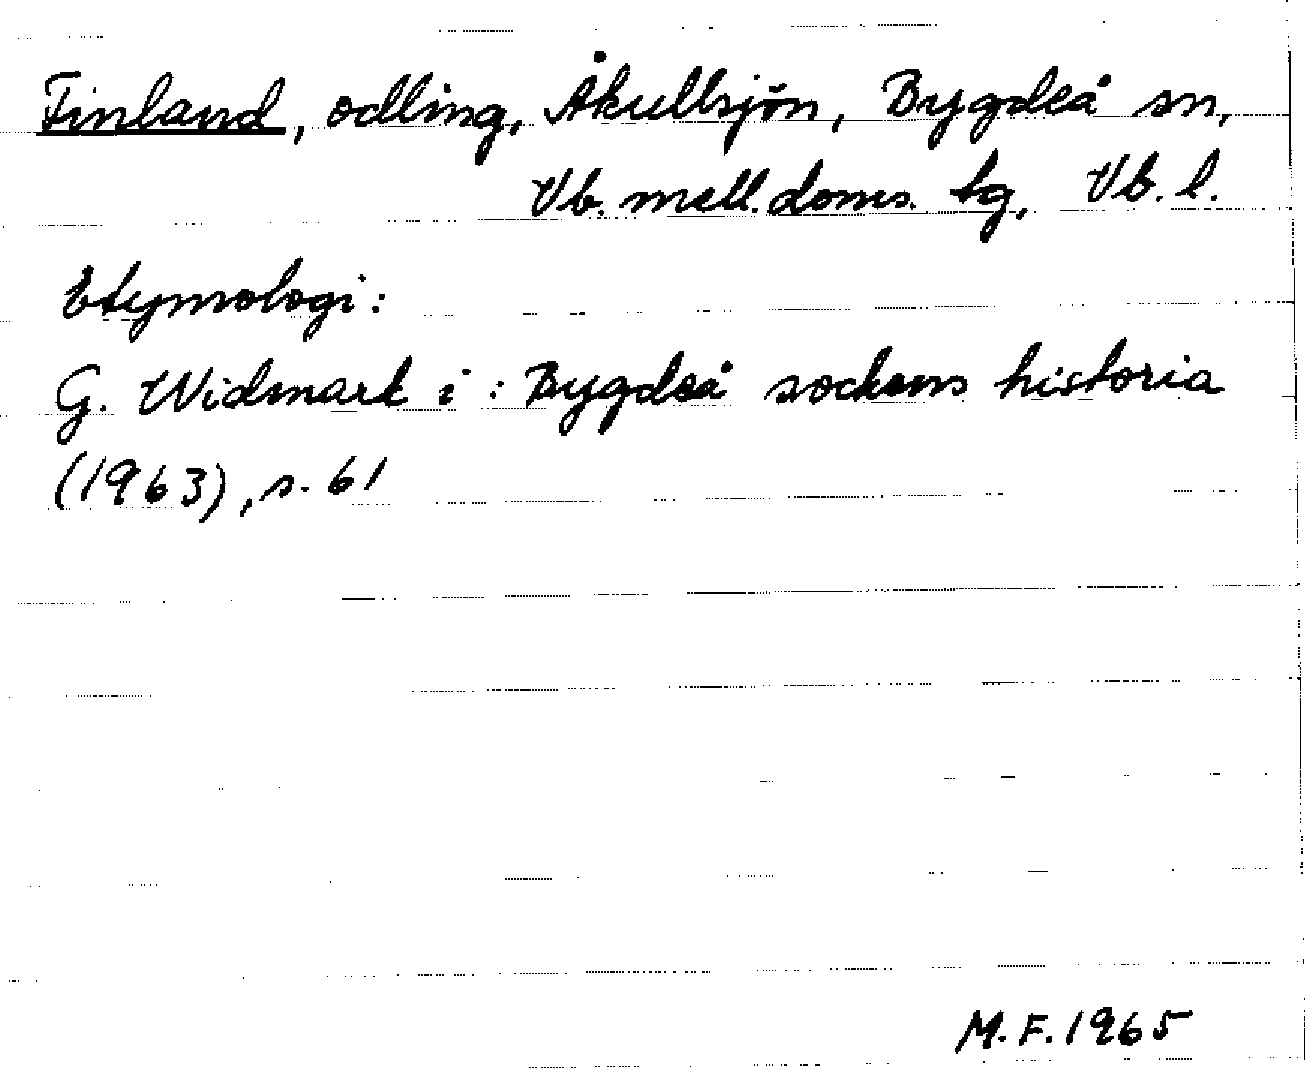 Finland, odling, Åkullsjön, Bygdeå sn,
Vb. mell. doms. tg, Vb. l.
Etymologi:
G. Widmark i : Bygdeå sockens historia
(1963), s. 61
M.F. 1965